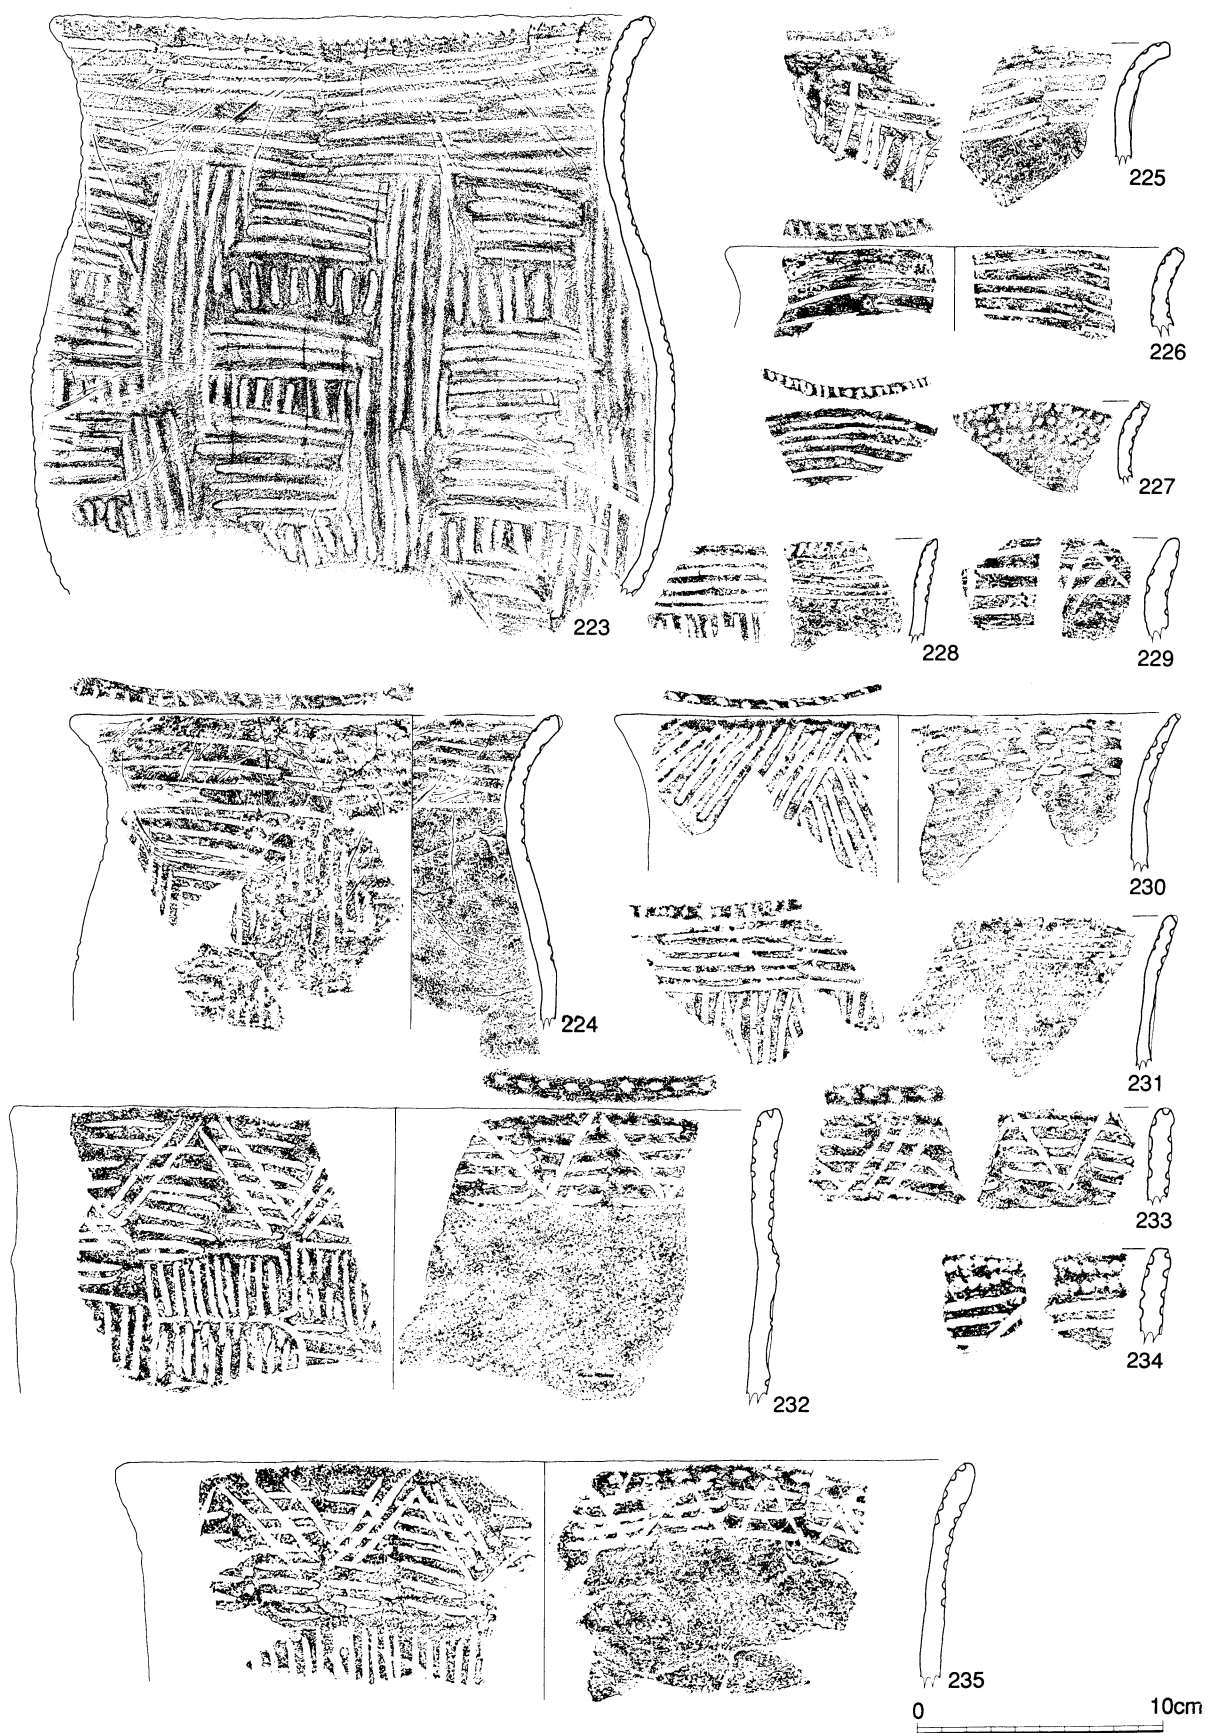 225
226
227
223
228
229
230
224
231
232
233
234
235
0 10cm